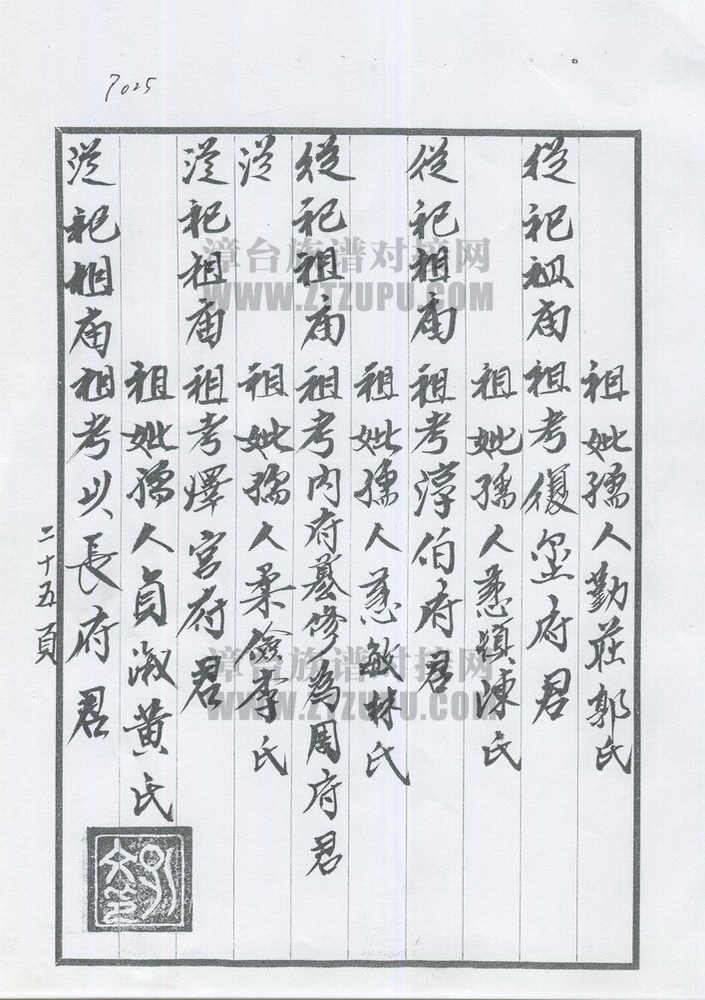 7025
祖妣孺人勤莊郭氏
從祀祖庙祖考復垒府君
祖妣孺人慈慎陳氏
從祀祖庙祖考淳伯府君
祖妣孺人慈敏林氏
從祀祖庙祖考内府墓修為周府君
從 祖妣孺人柔儉李氏
從祀祖庙祖考燡宫府君
祖妣孺人貞淑黄氏
從祀祖庙祖考以長府君
二十五頁
漳台族谱对接网
WWW.ZTZUPU.COM
漳台族谱对接网
WWW.ZTZUPU.COM